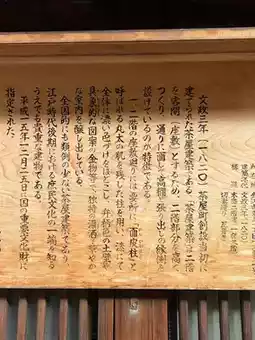 文政三年（一八二〇）茶屋町創設当初に
建てられた茶屋建築である。茶屋建築は二階
を客間（座敷）とするため、二階部分を高く
つくり、通りに面して高欄と張り出しの縁側を
設けているのが特徴である。
一、二階の座敷廻りには要所に「面皮柱」と
呼ばれる丸太の肌を残した柱を用い、漆にて
全体に濃い色づけをほどこし、弁柄色の土壁や
具象的な図案の金物等で、独特の瀟洒で艶やか
な室内を醸し出している。
全国的にも類例の少ない茶屋建築であり、
江戸時代後期における庶民文化の一端を知る
うえでも貴重な建物である。
平成十五年十二月二十五日に国の重要文化財に
指定された。